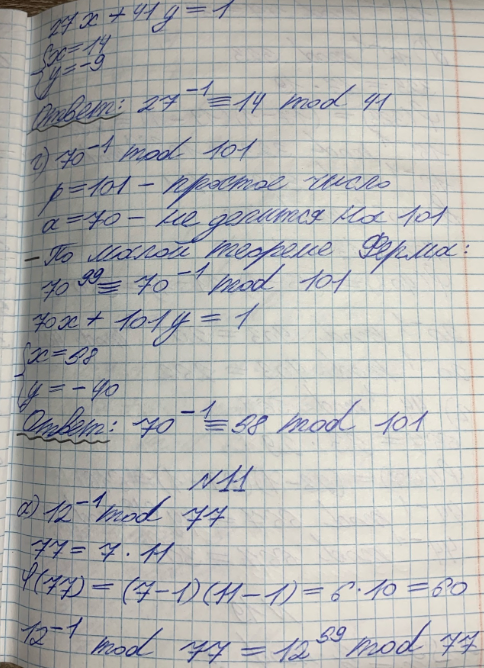 27x + 41y = 1
{x = 14
{y = -9
Ответ: 27^-1 ≡ 14 mod 41
г) 70^-1 mod 101
p = 101 - простое число
a = 70 - не делится на 101
- По малой теореме Ферма:
70^99 ≡ 70^-1 mod 101
70x + 101y = 1
{x = 58
{y = -40
Ответ: 70^-1 ≡ 58 mod 101
№11
а) 12^-1 mod 77
77 = 7 · 11
φ(77) = (7-1)(11-1) = 6·10 = 60
12^-1 mod 77 = 12^59 mod 77